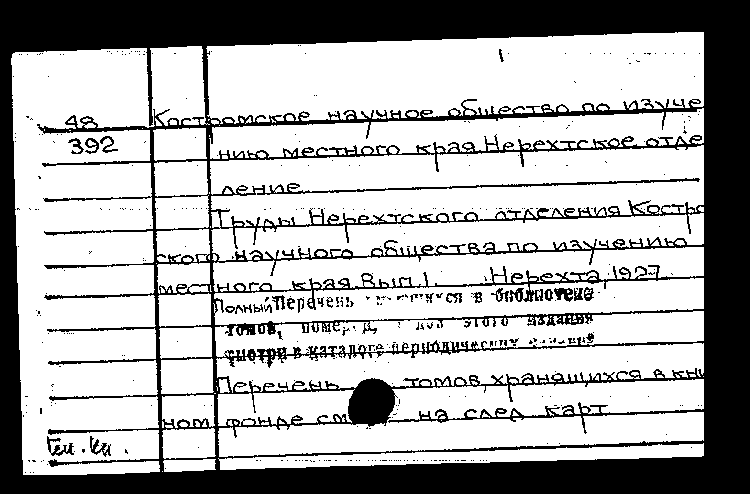 48
392
Костромское научное общество по изуче
нию местного края Нерехтское отде
ление
Труды Нерехтского отделения Костро
ского научного общества по изучению
местного края. Вып. 1. Нерехта, 1927
Полный Перечень в библиотеке
томов, этого издания
смотри в каталоге периодических
Перечень томов, хранящихся в кни
ном фонде см на след карт